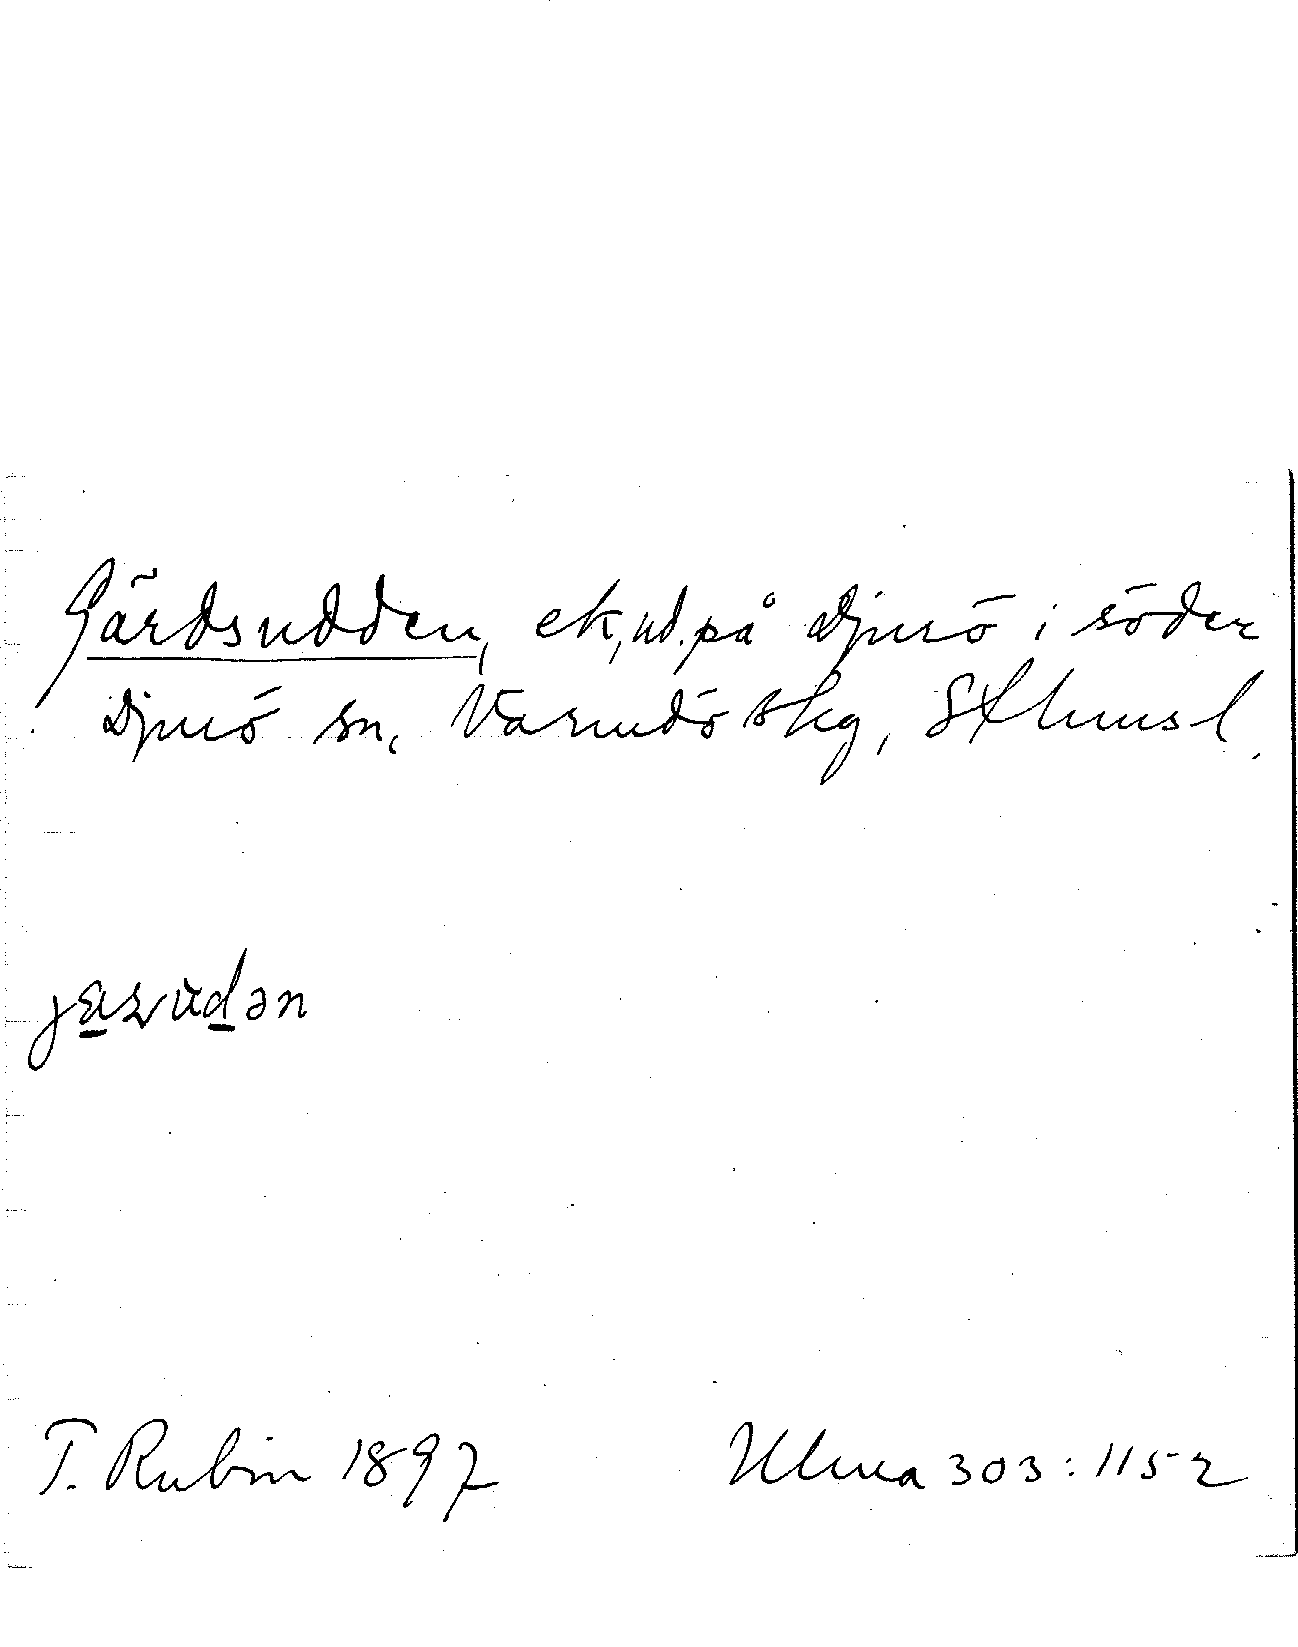 Gärdsudden, ek, ud. på Djurö i söder
Djurö sn, Värmdö skg, Sthlmsl.
T. Rubin 1897
Ulma 303:1152